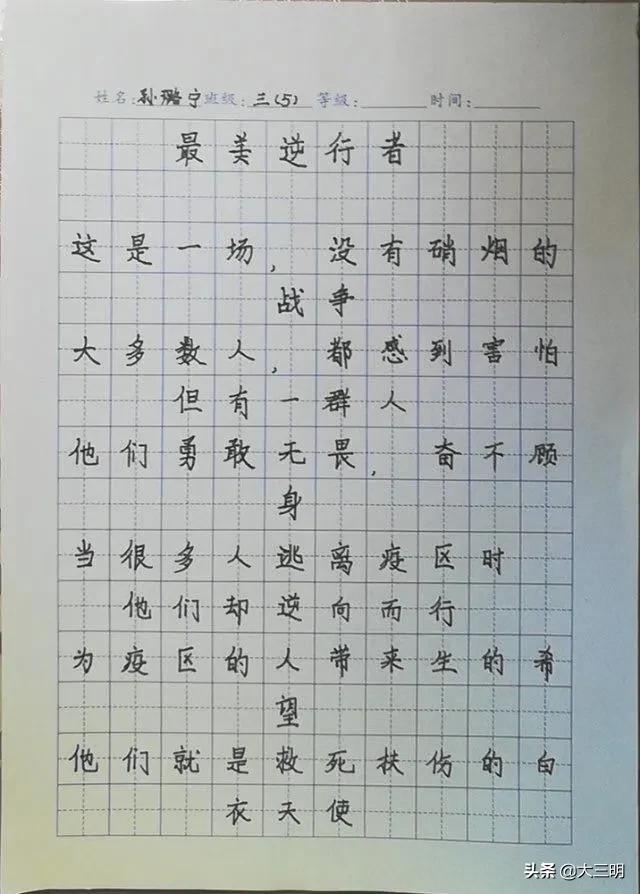 姓名:孙璐宁班级:三(5) 等级: 时间:
最美逆行者
这是一场,没有硝烟的
战争
大多数人,都感到害怕
但有一群人
他们勇敢无畏,奋不顾
身
当很多人逃离疫区时
他们却逆向而行
为疫区的人带来生的希
望
他们就是救死扶伤的白
衣天使
头条 @大三明